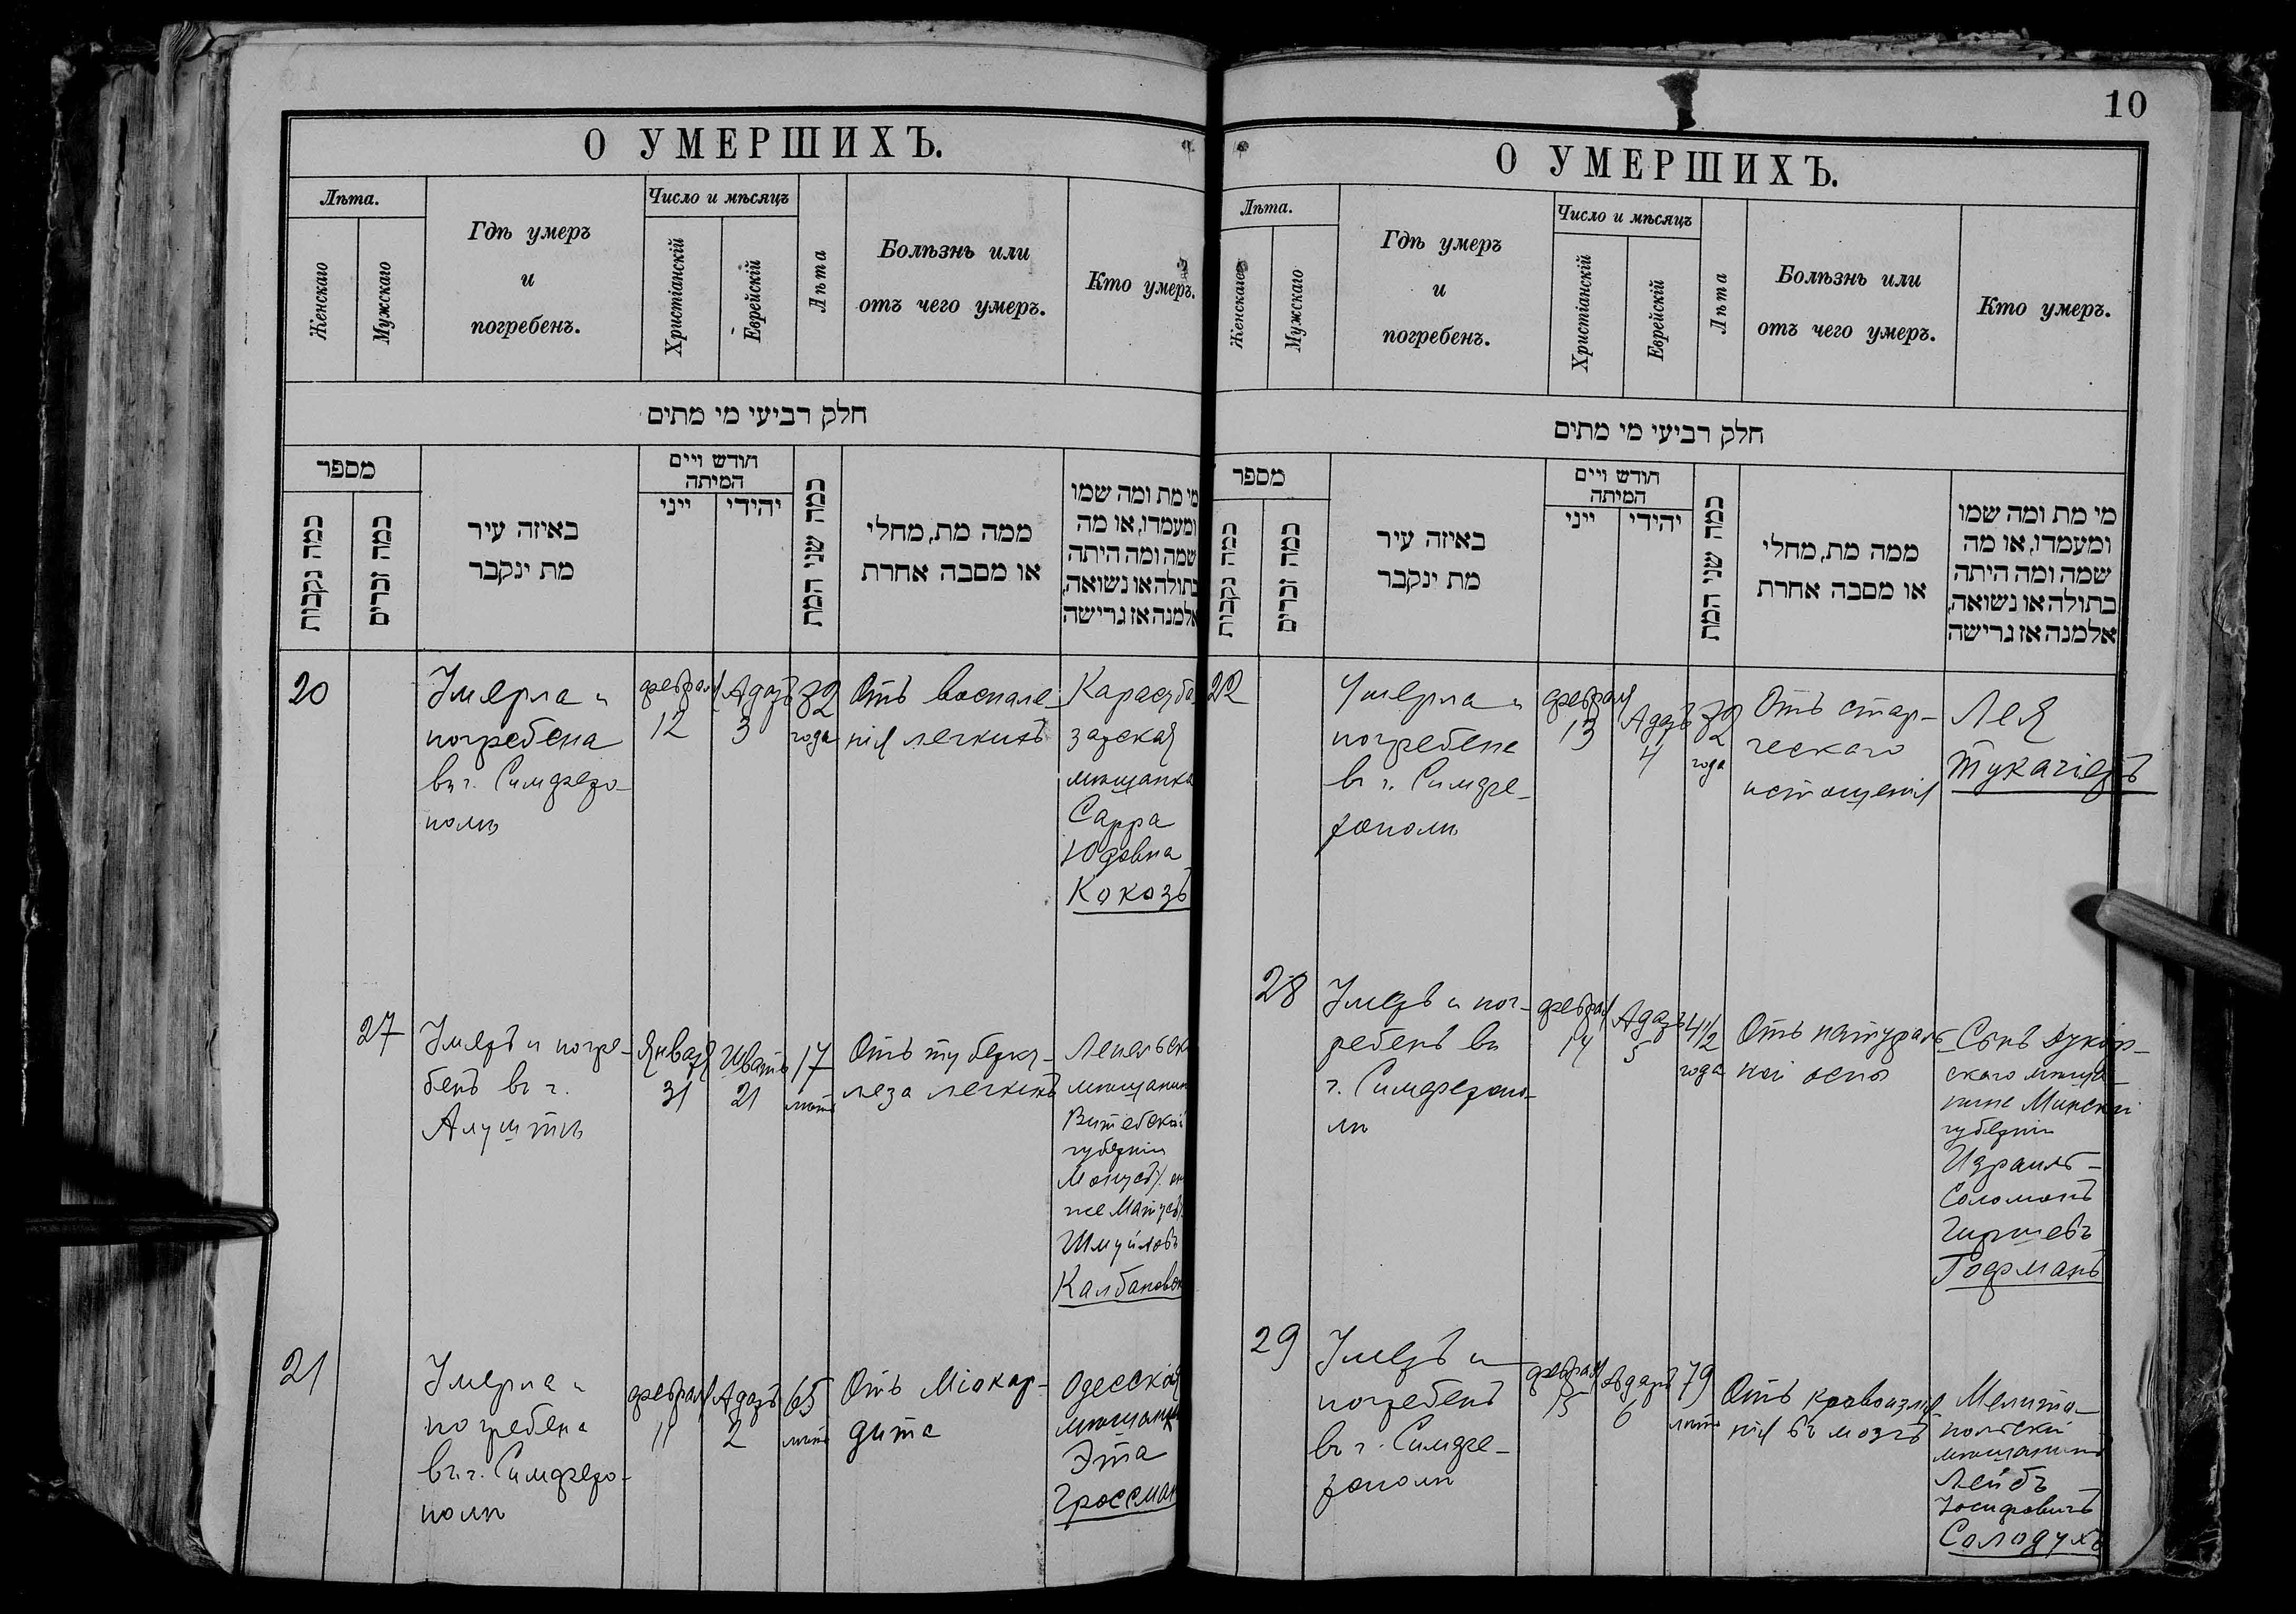 О УМЕРШИХЪ.
Лѣта.
Женскаго
Мужскаго
Гдѣ умеръ
и
погребенъ.
Число и мѣсяцъ
Христіанскій
Еврейскій
Лѣта
Болѣзнь или
отъ чего умеръ.
Кто умеръ.
חלק רביעי מי מתים
מספר
כמה נקבות
כמה זכרים
באיזה עיר
מת ינקבר
חודש ויים
המיתה
ייני
יהידי
כמה שני המת
ממה מת, מחלי
או מסבה אחרת
מי מת ומה שמו
ומעמדו, או מה
שמה ומה היתה
בתולה או נשואה,
אלמנה אז גרישה
20
Умерла и
погребена
въ г. Симферо-
полѣ
февраля
12
Адаръ
3
72
года
Отъ воспале-
нія легкихъ
Карасуба
зарская
мѣщанка
Сарра
Юдовна
Кокозъ
27
Умеръ и погре-
бенъ въ г.
Алуштѣ
Января
31
Шватъ
21
17
лѣтъ
Отъ туберку-
леза легкихъ
Лепельск
мѣщанин
Витебской
губерніи
же Матусъ
Шмуйловъ
Калбановск
21
Умерла и
погребена
въ г. Симферо-
полѣ
февраля
11
Адаръ
2
65
лѣтъ
Отъ міокар-
дита
Одесская
мѣщанка
Эта
Гроссман
10
О УМЕРШИХЪ.
Лѣта.
Женскаго
Мужскаго
Гдѣ умеръ
и
погребенъ.
Число и мѣсяцъ
Христіанскій
Еврейскій
Лѣта
Болѣзнь или
отъ чего умеръ.
Кто умеръ.
חלק רביעי מי מתים
מספר
כמה נקבות
כמה זכרים
באיזה עיר
מת ינקבר
חודש ויים
המיתה
ייני
יהידי
כמה שני המת
ממה מת, מחלי
או מסבה אחרת
מי מת ומה שמו
ומעמדו, או מה
שמה ומה היתה
בתולה או נשואה,
אלמנה אז גרישה
22
Умерла и
погребена
въ г. Симфе-
рополѣ
февраля
13
Адаръ
4
72
года
Отъ стар-
ческаго
истощенія
Лея
Тукачіеръ
28
Умеръ и пог-
ребенъ въ
г. Симферопо-
лѣ
февраля
14
Адаръ
5
4 1/2
года
Отъ натураль-
ной оспы
Сынъ Дукор-
скаго мѣща-
нина Минской
губерніи
Израиль-
Соломонъ
Гиршевъ
Гофманъ
29
Умеръ и
погребенъ
въ г. Симфе-
рополѣ
февраля
15
Адаръ
6
79
лѣтъ
Отъ кровоизлія-
нія въ мозгъ
Мелито-
польскій
мѣщанинъ
Лейбъ
Іосифовичъ
Солодухъ